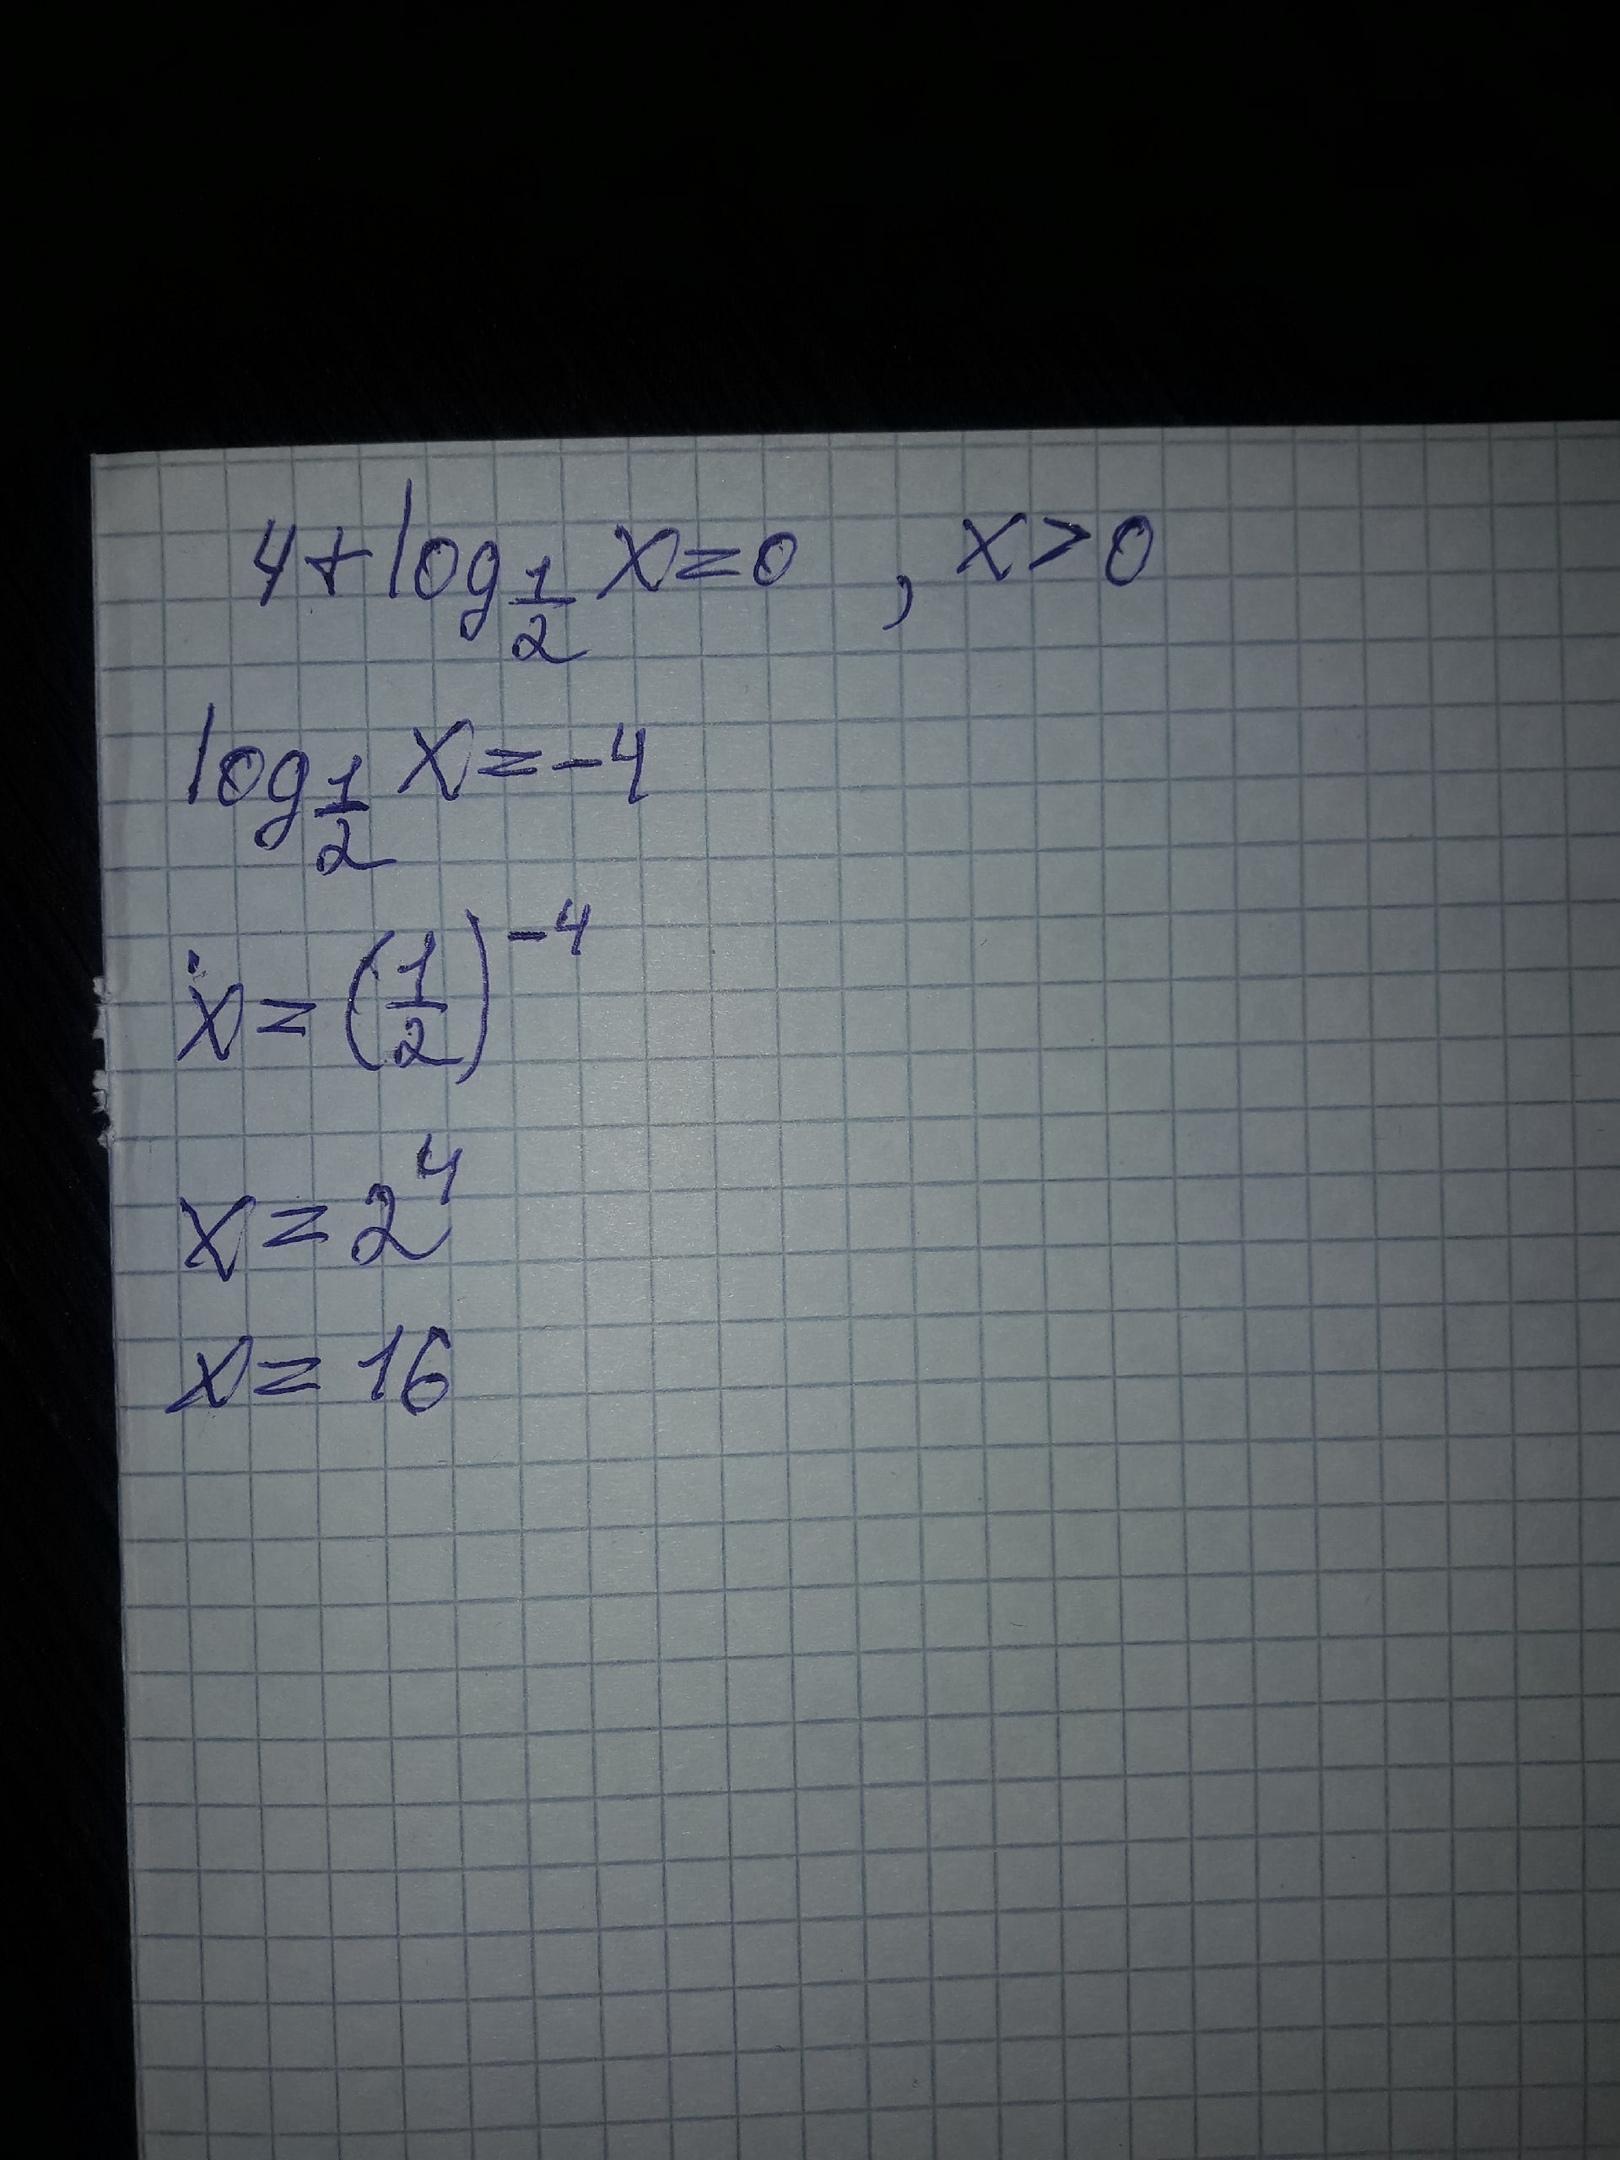 4+log_{\frac{1}{2}} x=0 , x>0
log_{\frac{1}{2}} x=-4
x=(\frac{1}{2})^{-4}
x=2^4
x=16